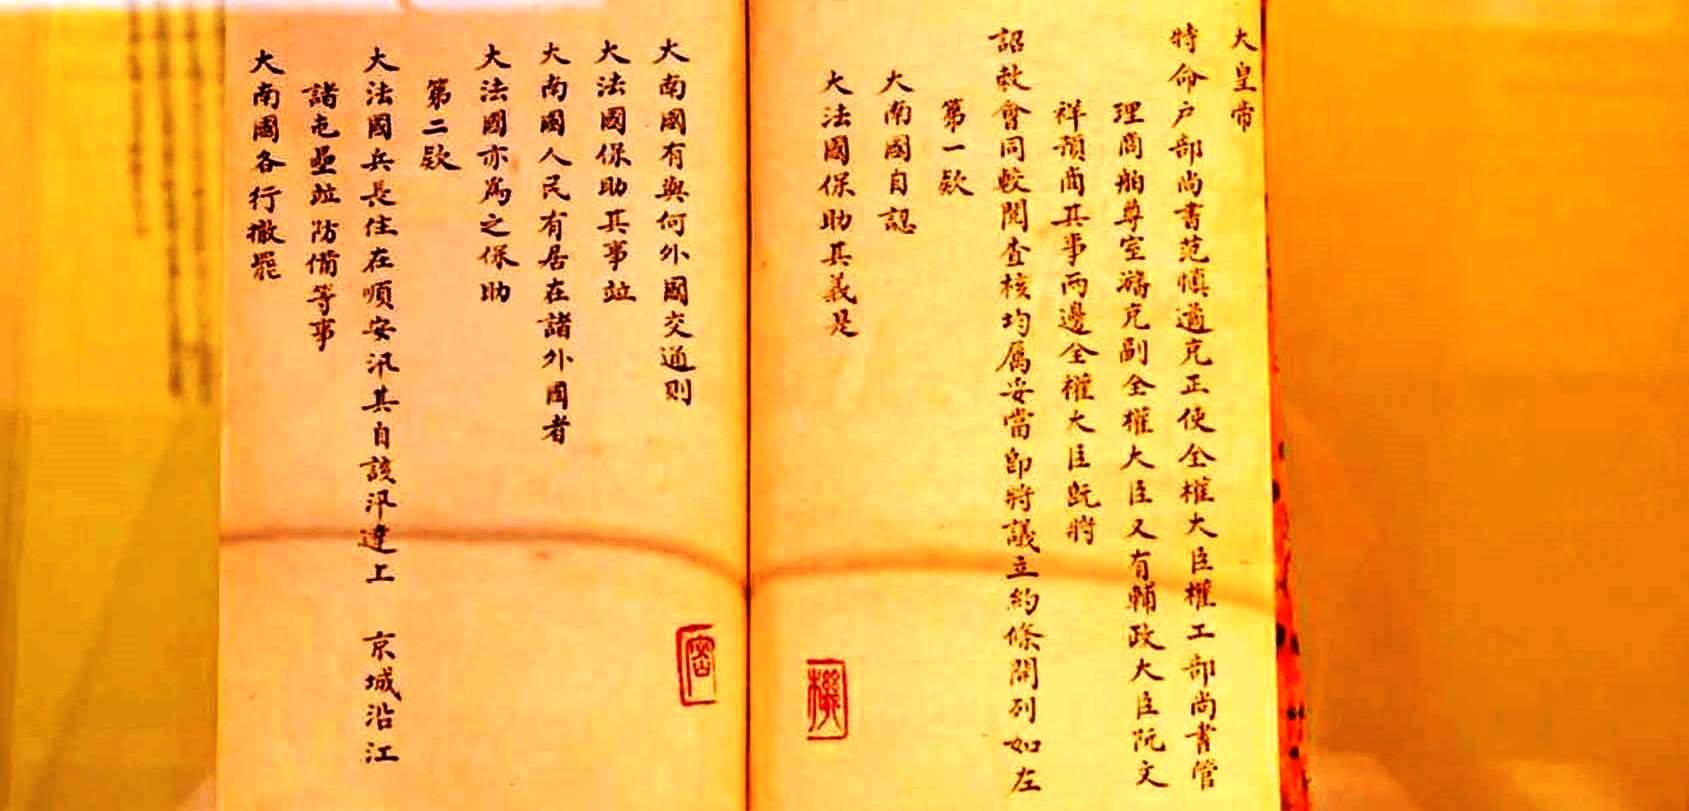 大皇帝
特命户部尚書范慎遹充正使全權大臣權工部尚書管
理商舶尊室濐充副全權大臣又有輔政大臣阮文
祥預商其事兩邊全權大臣既將
詔敕會同較閱查核均屬妥當卽將議立約條開列如左
第一款
大南國自認
大法國保助其義是
機
大南國有與何外國交通則
大法國保助其事竝
大南國人民有居在諸外國者
大法國亦爲之保助
第二款
大法國兵長住在順安汛其自該汛達上 京城沿江
諸屯壘竝防備等事
大南國各行撤罷
密